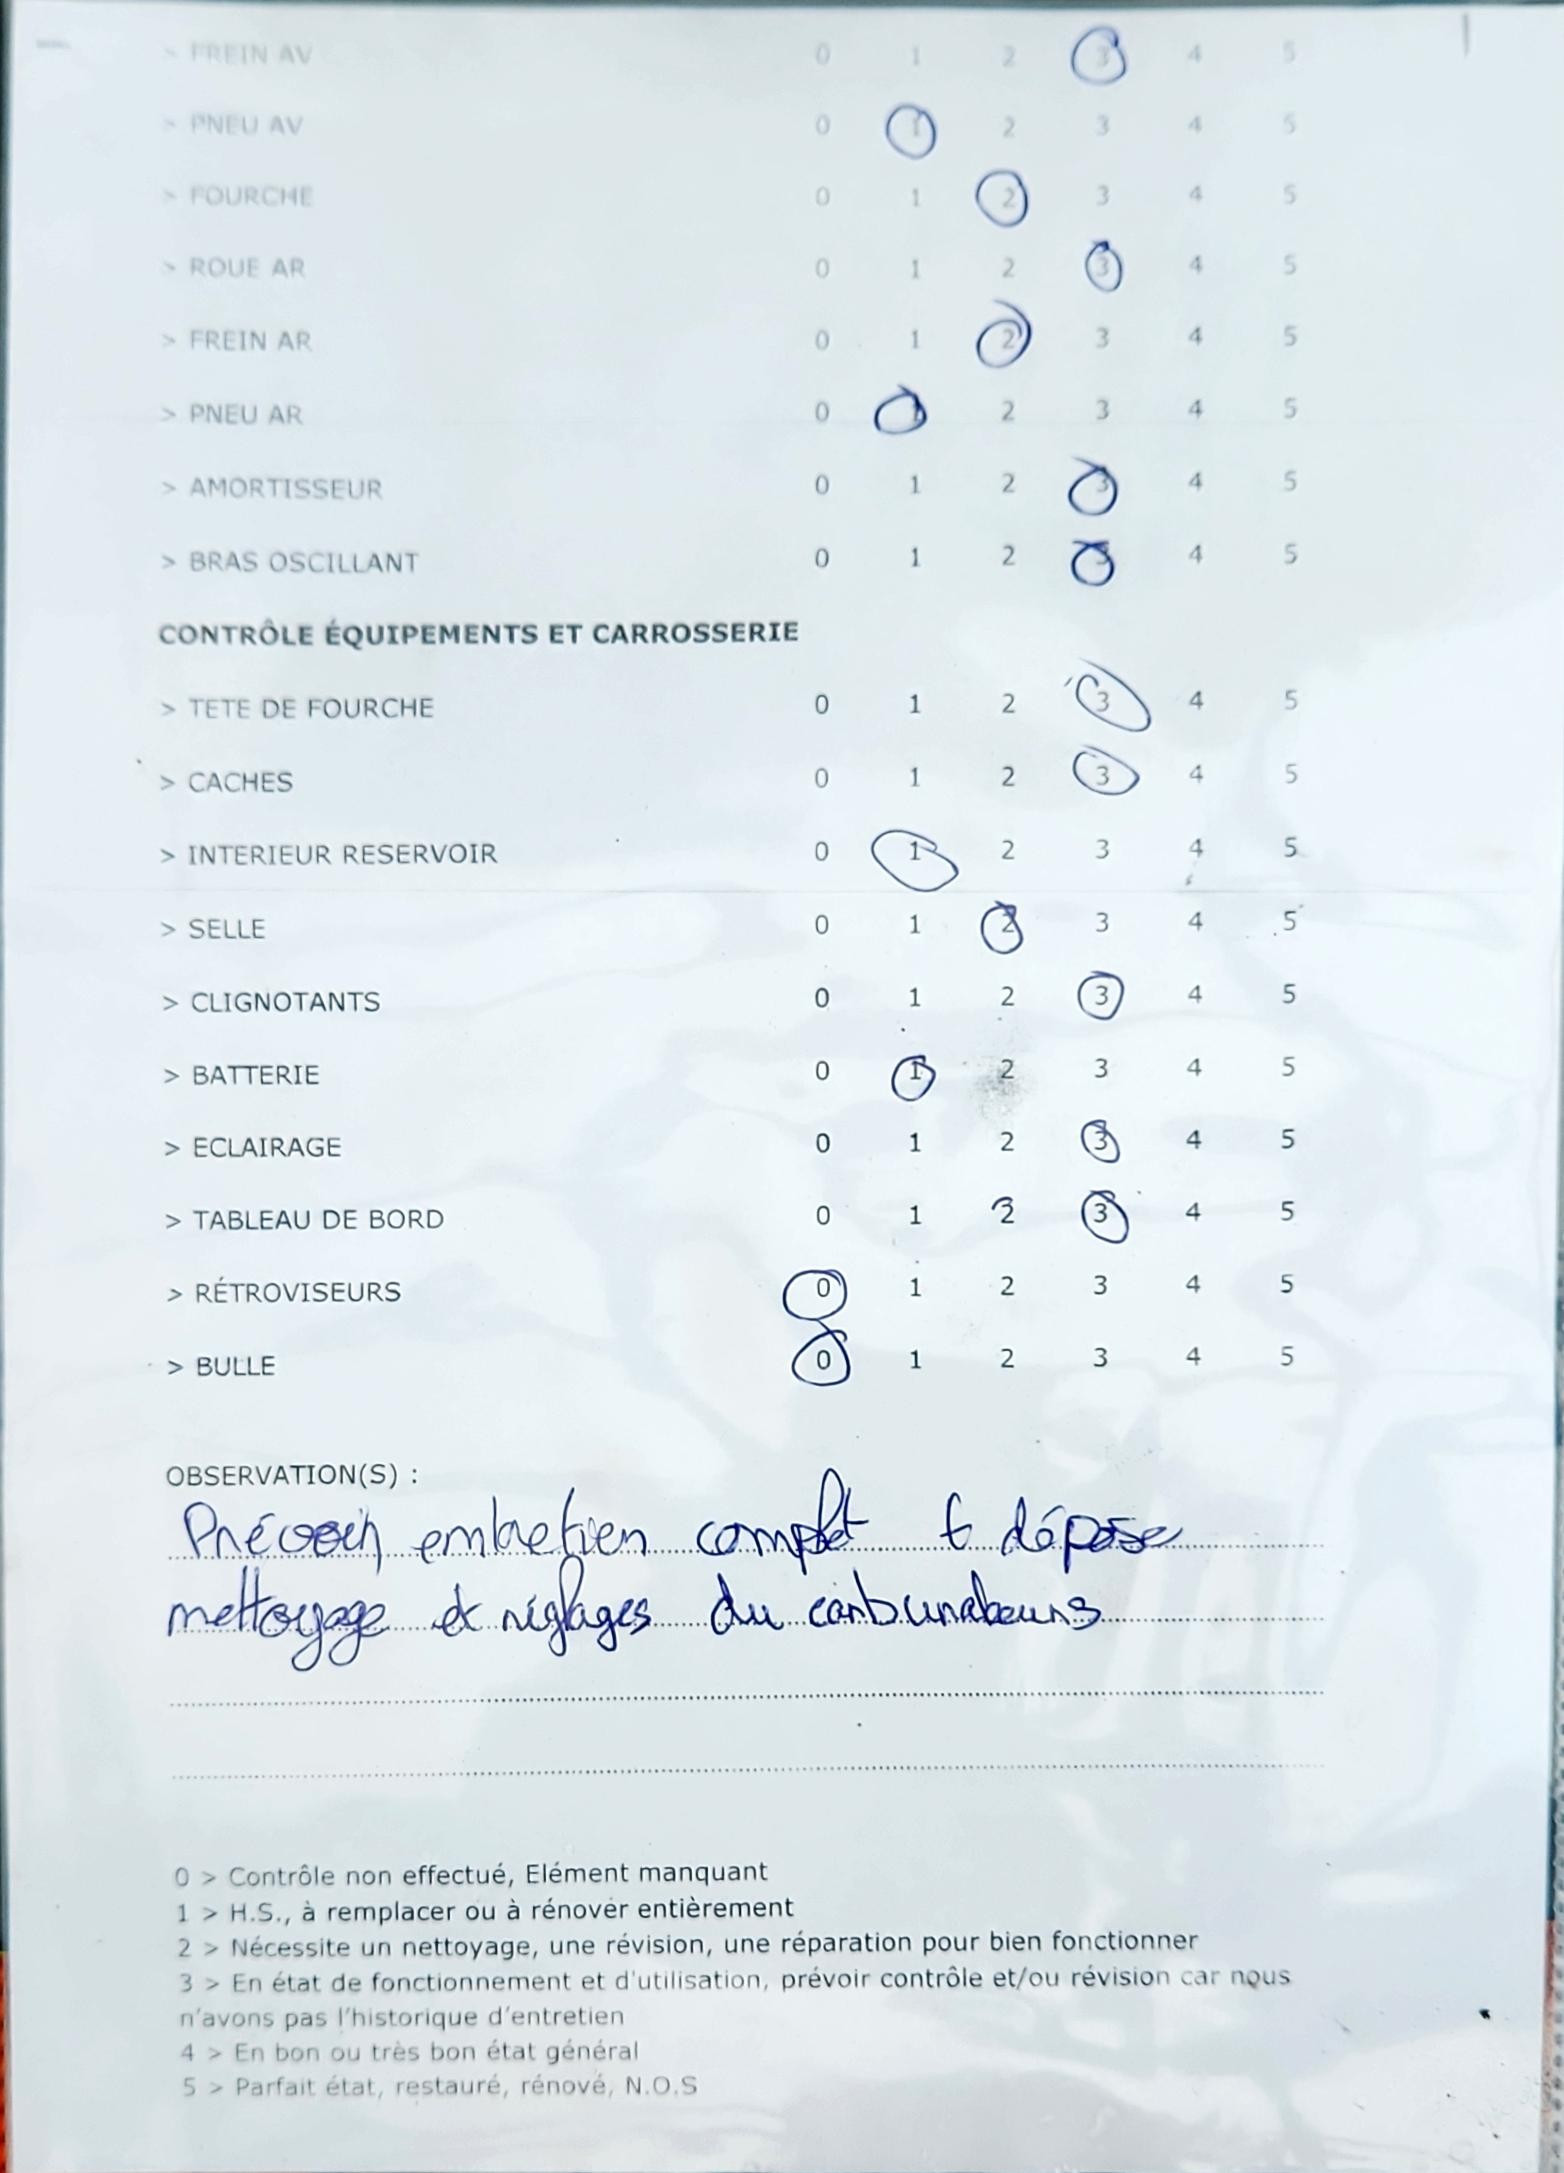 > FREIN AV 0 1 2 3 4 5
> PNEU AV 0 1 2 3 4 5
> FOURCHE 0 1 2 3 4 5
> ROUE AR 0 1 2 3 4 5
> FREIN AR 0 1 2 3 4 5
> PNEU AR 0 1 2 3 4 5
> AMORTISSEUR 0 1 2 3 4 5
> BRAS OSCILLANT 0 1 2 3 4 5
CONTRÔLE ÉQUIPEMENTS ET CARROSSERIE
> TETE DE FOURCHE 0 1 2 3 4 5
> CACHES 0 1 2 3 4 5
> INTERIEUR RESERVOIR 0 1 2 3 4 5
> SELLE 0 1 2 3 4 5
> CLIGNOTANTS 0 1 2 3 4 5
> BATTERIE 0 1 2 3 4 5
> ECLAIRAGE 0 1 2 3 4 5
> TABLEAU DE BORD 0 1 2 3 4 5
> RÉTROVISEURS 0 1 2 3 4 5
> BULLE 0 1 2 3 4 5
OBSERVATION(S) :
Prévoir entretien complet dépose
nettoyage et réglages du carburateurs
0 > Contrôle non effectué, Elément manquant
1 > H.S., à remplacer ou à rénover entièrement
2 > Nécessite un nettoyage, une révision, une réparation pour bien fonctionner
3 > En état de fonctionnement et d'utilisation, prévoir contrôle et/ou révision car nous
n'avons pas l'historique d'entretien
4 > En bon ou très bon état général
5 > Parfait état, restauré, rénové, N.O.S